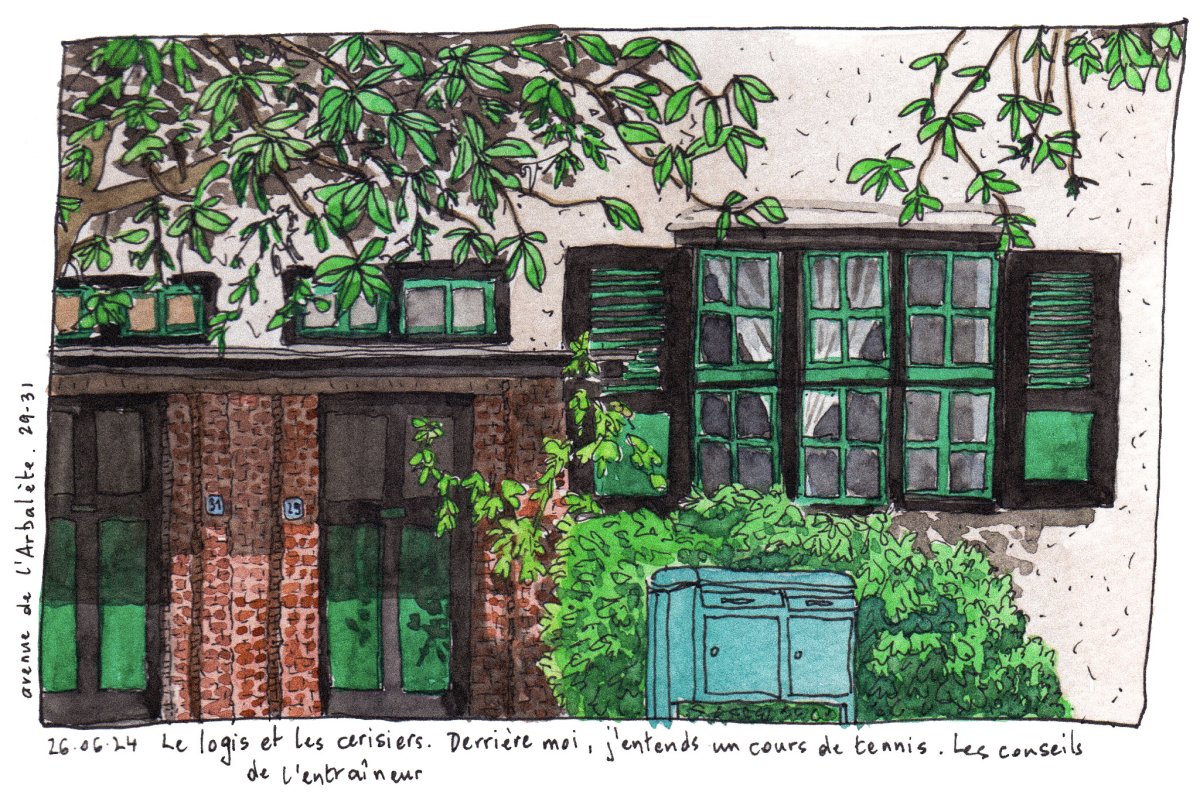 avenue de l'Arbalète. 29-31
31
29
26.06.24 Le logis et les cerisiers. Derrière moi, j'entends un cours de tennis. Les conseils
de l'entraîneur